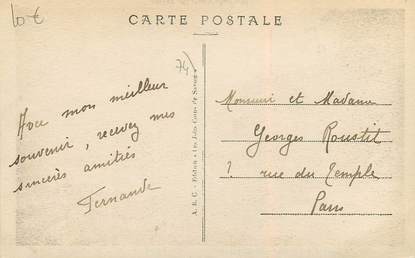 10 €
CARTE POSTALE
74
Avec mon meilleur
souvenir, recevez mes
sincères amitiés
Fernande
Les Jolis Coins de Savoie
Monsieur et Madame
Georges Roustit
7 rue du Temple
Paris